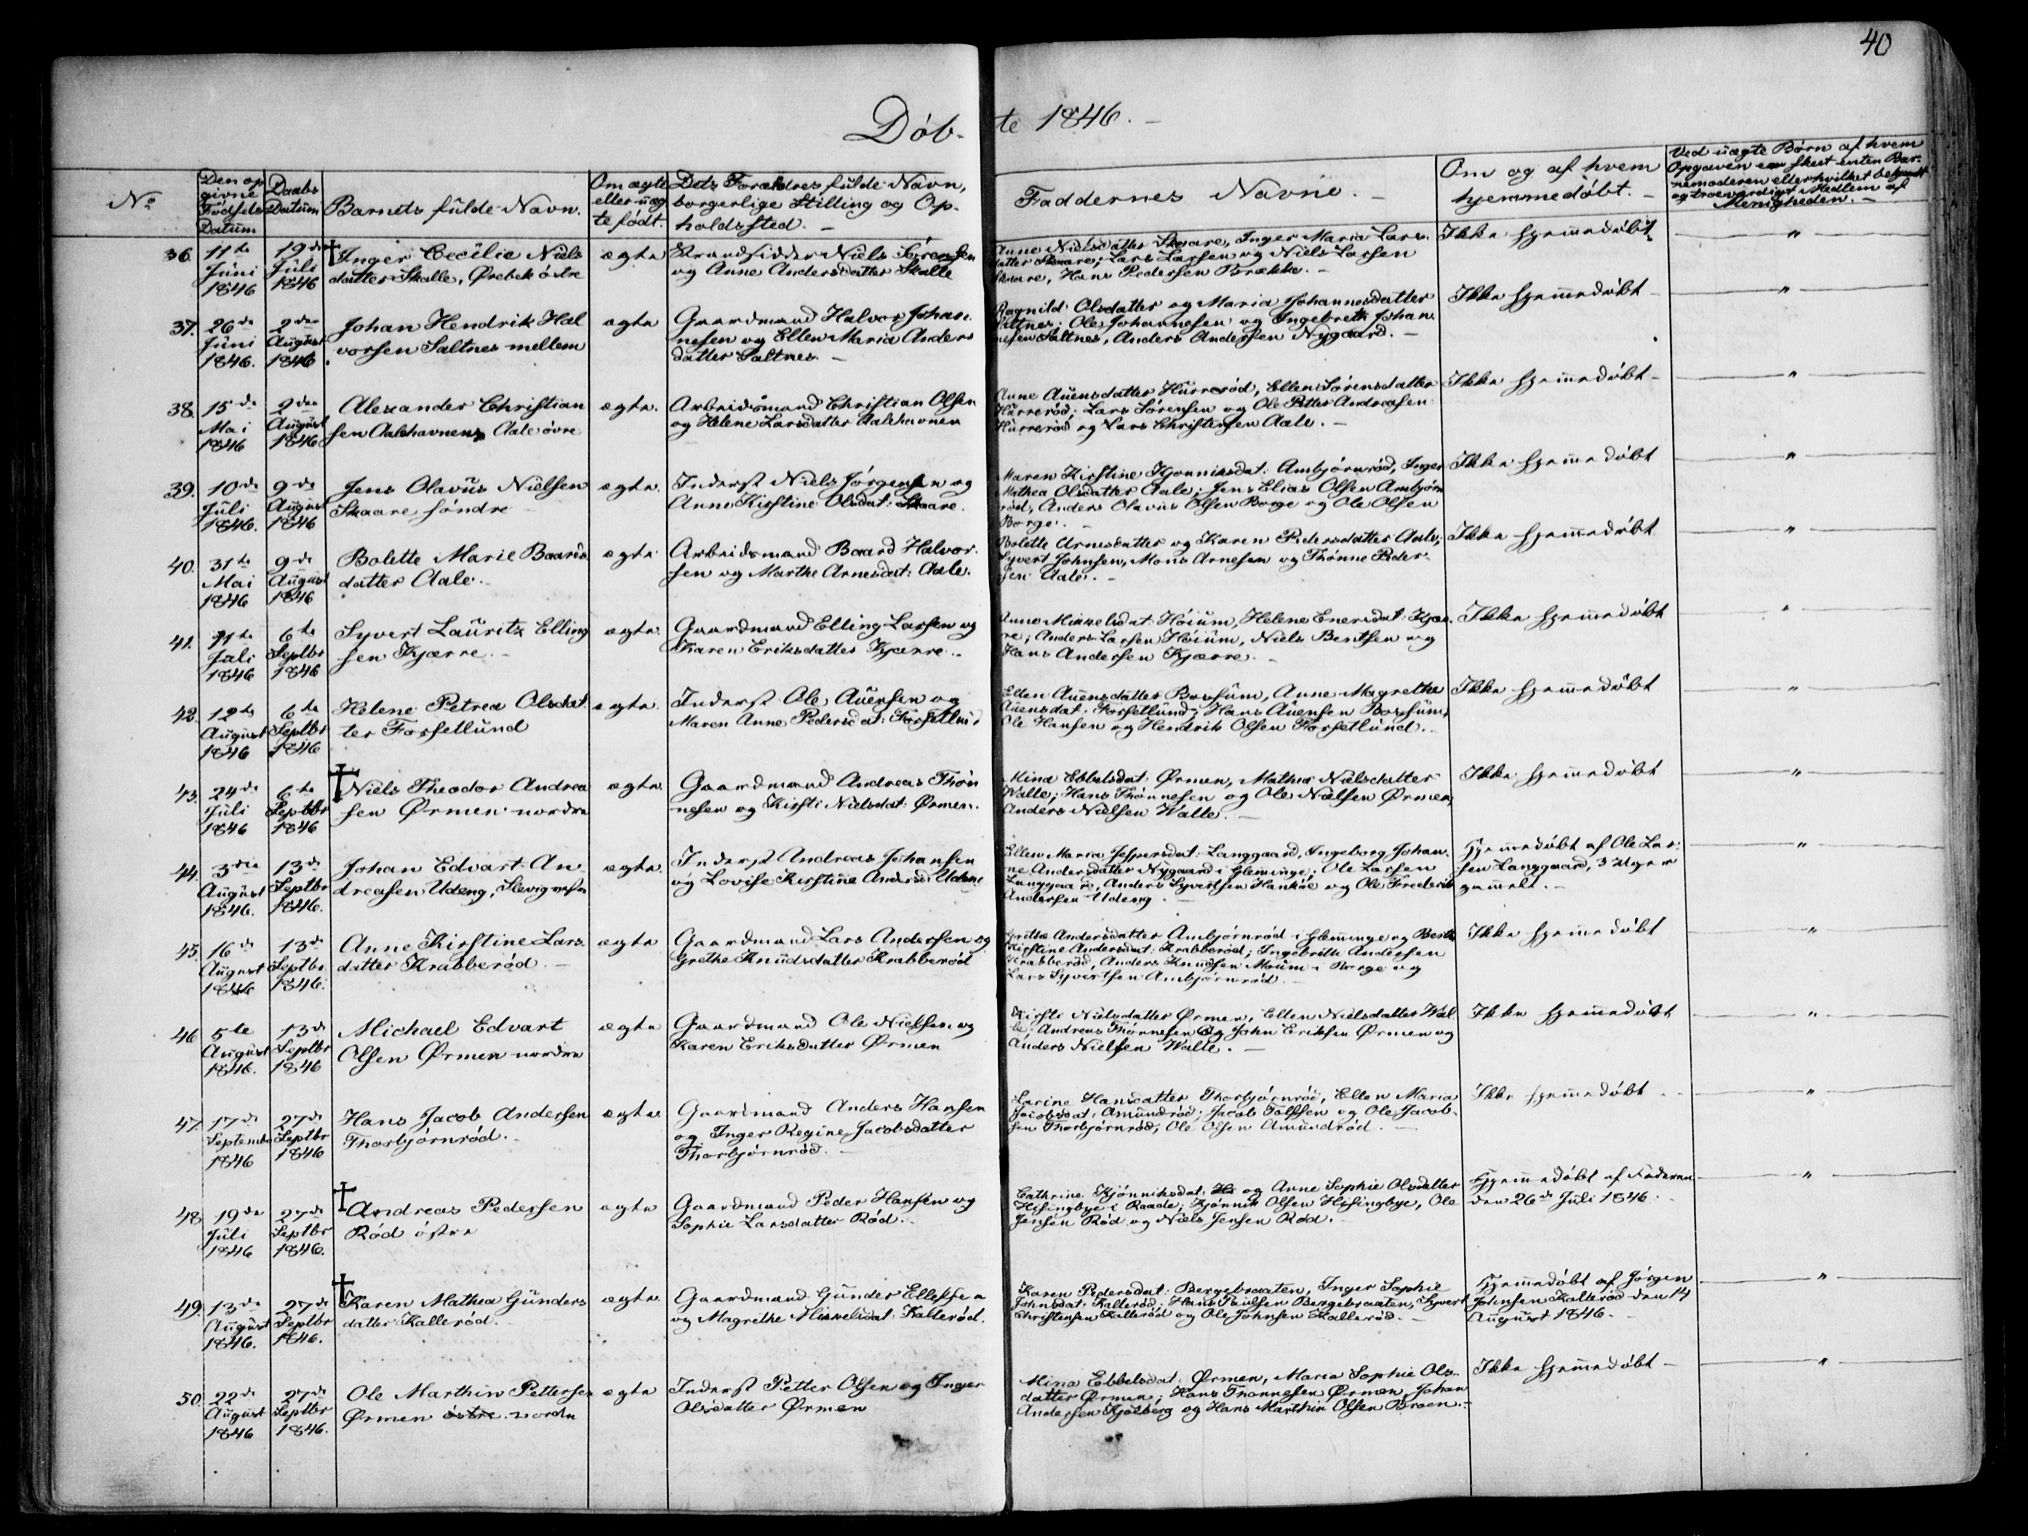 40
Døb-
te 1846. –
No
Den op
givne
Fødsels
Datum
Daabs
Datum
Barnets fulde Navn.
Om ægte
eller uæg
te født.
Dets Forældres fulde Navn,
borgerlige Stilling og Op-
holdssted. –
Faddernes Navne. –
Om og af hvem
hjemmedøbt. –
Ved uægte Børn af hvem
Opgaven er skeet enten Bar-
nemoderen eller hvilket bekjendt
og troeværdigt Medlem af
Menigheden. –
36.
11te
Juni
1846
19de
Juli
1846
† Inger Cecilie Niels
datter Skalle, Ørebek østre
ægte
Strandsidder Niels Sørensen
og Anne Andersdatter Skalle
Anne Nielsdatter Skaare, Inger Maria Lars-
datter Skaare, Lars Larsen og Niels Larsen
Skaare, Hans Pedersen Brække. –
Ikke hjemmedøbt
"
37.
26de
Juni
1846.
2den
August
1846
Johan Hendrik Hal
vorsen Saltnes mellem
ægte
Gaardmand Halvor Johan-
nesen og Ellen Maria Anders
datter Saltnes. –
Ragnild Olsdatter og Maria Johannesdatter
Saltnes; Ole Johannesen og Ingebreth Johan
nesen Saltnes, Anders Andersen Nygaard. –
Ikke hjemmedøbt
"
38.
15de
Mai
1846
2den
August
1846
Alexander Christian
sen Aalehavnen, Aale øvre
ægte.
Arbeidsmand Christian Olsen
og Helene Larsdatter Aalehavnen
Anne Auensdatter Hurrerød, Ellen Sørensdatter
Hurrerød; Lars Sørensen og Ole Petter Andreasen
Hurrerød og Lars Christensen Aale. –
Ikke hjemmedøbt –
"
39.
10de
Juli
1846.
9de
August
1846
Jens Olavus Nielsen
Skaare søndre
ægte.
Inderst Niels Jørgensen og
Anne Kirstine Olsdat: Skaare.
Maren Kirstine Kjønniksdat: Ambjørnrød, Inger
Mathea Olsdatter Aale; Jens Elias Olsen Ambjørn
rød, Anders Olavus Olsen Borge og Ole Olsen
Borge. –
Ikke hjemmedøbt
"
40.
31te
Mai
1846
9de
August
1846
Bolette Marie Baards
datter Aale.
ægte
Arbeidsmand Baard Halvor-
sen og Marthe Arnesdat: Aale.
Bolette Arnesdatter og Karen Pedersdatter Aale,
Syvert Johnsen, Mons Arnesen og Thønne Peder-
sen Aale. –
Ikke hjemmedøbt
"
41.
11te
Juli
1846
6te
Septbr
1846
Syvert Lauritz Elling
sen Kjærre. –
ægte.
Gaardmand Elling Larsen og
Karen Eriksdatter Kjærre. –
Anne Mikkelsdat: Høium, Helene Enersdat: Kjær-
re; Anders Larsen Høium, Niels Bentsen og
Hans Andersen Kjærre. –
Ikke hjemmedøbt
"
42.
12te
August
1846
6te
Septbr
1846
Helene Petrea Olsdat
ter Forsetlund
ægte.
Inderst Ole Auensen og
Maren Anne Pedersdat: Forsetlund
Ellen Auensdatter Bossum, Anne Magrethe
Auensdat: Forsetlund; Hans Auensen Bossum,
Ole Hansen og Hendrik Olsen Forsetlund. –
Ikke hjemmedøbt
"
43.
24de
Juli
1846
6te
Septbr
1846
† Niels Theodor Andrea
sen Ørmen nordre
ægte.
Gaardmand Andreas Thøn
nesen og Kirsti Nielsdat: Ørmen.
Mina Ebbelsdat: Ørmen, Mathea Nielsdatter
Walle; Hans Thønnesen og Ole Nielsen Ørmen,
Anders Nielsen Walle. –
Ikke hjemmedøbt
"
44.
3die
August
1846.
13de
Septbr
1846.
Johan Edvart An-
dreasen Udeng, Slevig vestre
ægte.
Inderst Andreas Johansen
og Lovise Kirstine Andersd: Udeng
Ellen Maria Jespersdat: Langgaard, Ingeborg Johan-
ne Andersdatter Nygaard i Glemminge; Ole Larsen
Langgaard, Anders Syvertsen Hankøe og Ole Frederik
Andersen Udeng. –
Hjemmedøbt af Ole Lar-
sen Langgaard, 3 Uger
gammelt. –
"
45.
16de
August
1846
13de
Septbr
1846.
Anne Kirstine Lars
datter Krabberød. –
ægte
Gaardmand Lars Andersen og
Grethe Knudsdatter Krabberød
Grethe Andersdatter Ambjørnrød i Glemminge og Berthe
Kirstine Andersdat: Krabberød; Ingebreth Andersen
Krabberød, Anders Knudsen Moum i Borge og
Lars Syvertsen Ambjørnrød. –
Ikke hjemmedøbt
"
46.
5te
August
1846.
13de
Septbr
1846
Michael Edvart
Olsen Ørmen nordre
ægte
Gaardmand Ole Nielsen og
Karen Eriksdatter Ørmen
Kirsti Nielsdatter Ørmen, Ellen Nielsdatter Wal-
le; Andreas Thønnesen og John Eriksen Ørmen og
Anders Nielsen Walle. –
Ikke hjemmedøbt
"
47.
17de
Septembr
1846
27de
Septbr
1846
Hans Jacob Andersen
Thorbjørnrød. –
ægte
Gaardmand Anders Hansen
og Inger Regine Jacobsdatter
Thorbjørnrød. –
Larine Hansdatter Thorbjørnrød, Ellen Maria
Jacobsdat: Amundrød; Jacob Tolfsen og Ole Jacob-
sen Thorbjørnrød, Ole Olsen Amundrød. –
Ikke hjemmedøbt
"
48.
19de
Juli
1846
27de
Septbr
1846.
† Andreas Pedersen
Rød østre
ægte
Gaardmand Peder Hansen og
Sophie Larsdatter Rød. –
Cathrine Kjønniksdat: Hi og Anne Sophie Olsdatter
Hisingbye i Raade; Kjønnik Olsen Hisingbye, Ole
Jensen Rød og Niels Jensen Rød. –
Hjemmedøbt af Faderen
den 26de Juli 1846. –
"
49.
13de
August
1846.
27de
Septbr
1846.
† Karen Mathea Gunders
datter Kallerød.
ægte.
Gaardmand Gunder Ellefsen
og Magrethe Mikkelsdat: Kallerød.
Karen Pedersdat: Bergebraaten, Inger Sophie
Johnsdat: Kallerød; Hans Paulsen Bergebraaten, Syvert
Christensen Kallerød og Ole Johnsen Kallerød. –
Hjemmedøbt af Jørgen
Johnsen Kallerød den 14
August 1846. –
"
50.
22de
August
1846
27de
Septbr
1846.
Ole Marthin Pettersen
Ørmen østre nordre
ægte
Inderst Petter Olsen og Inger
Olsdatter Ørmen
Mina Ebbelsdat: Ørmen, Maria Sophie Ols-
datter Ørmen; Hans Thønnesen Ørmen, Johan
Andersen Kjølberg og Hans Marthin Olsen Broen. –
Ikke hjemmedøbt –
"